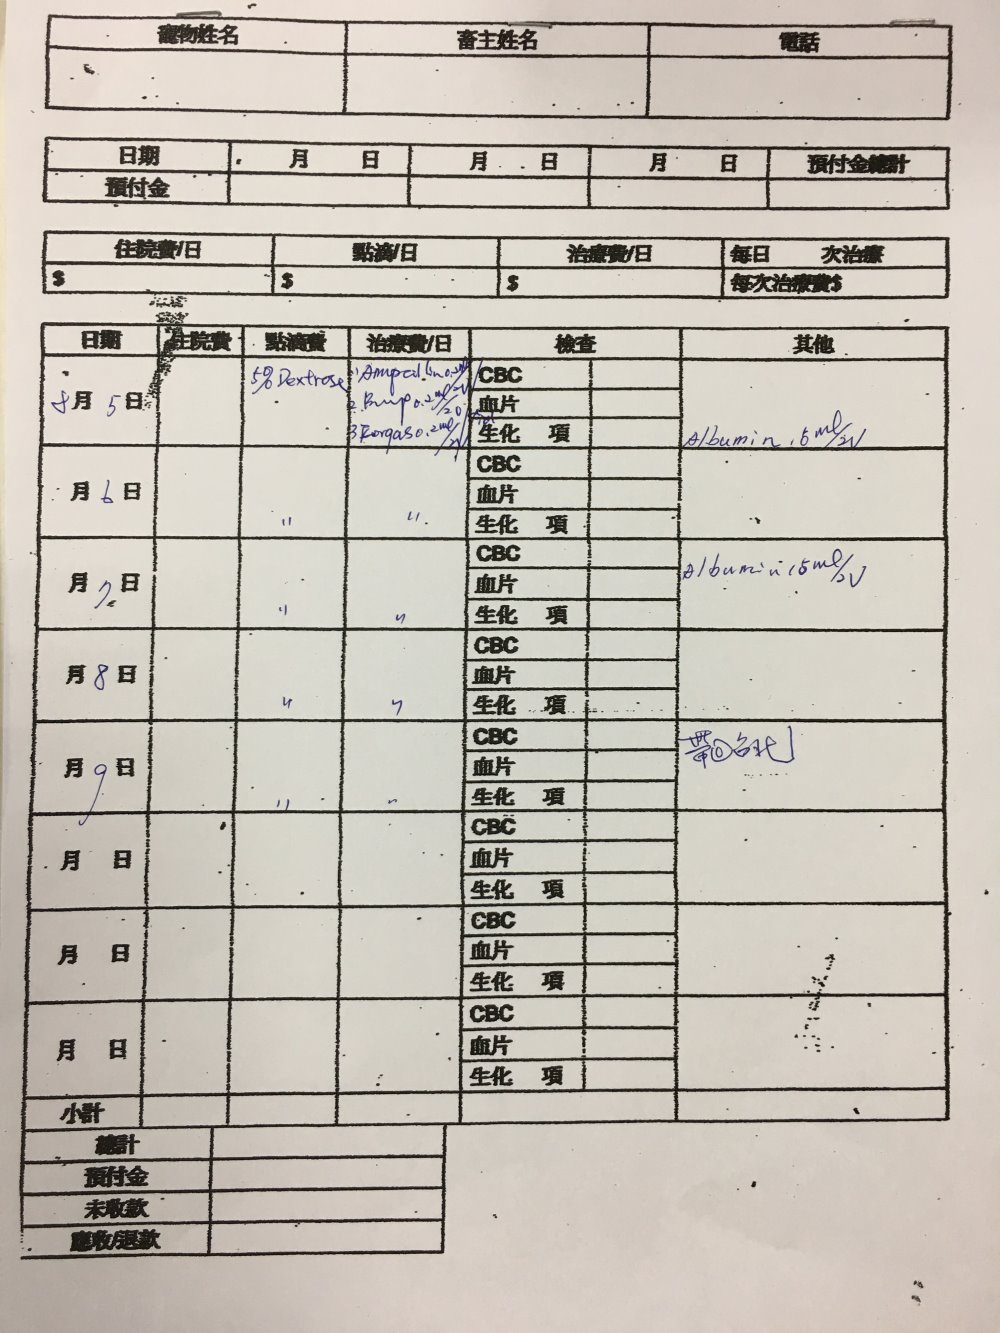 寵物姓名 畜主姓名 電話
日期 月 日 月 日 月 日 預付金總計
預付金
住院費/日 點滴/日 治療費/日 每日 次治療
$ $ $ 每次治療費$
日期 住院費 點滴費 治療費/日 檢查 其他
8月5日 5% Dextrose 1. 0.2ml/ CBC
2. 0.2ml/ 血片
3. 0.2ml/ 生化 項 Albumin 15ml/IV
月6日 CBC
血片
" " 生化 項
月7日 CBC Albumin 15ml/IV
血片
" " 生化 項
月8日 CBC
血片
" " 生化 項
月9日 CBC 帶回台北
血片
" " 生化 項
月 日 CBC
血片
生化 項
月 日 CBC
血片
生化 項
月 日 CBC
血片
生化 項
小計
總計
預付金
未收款
應收/退款